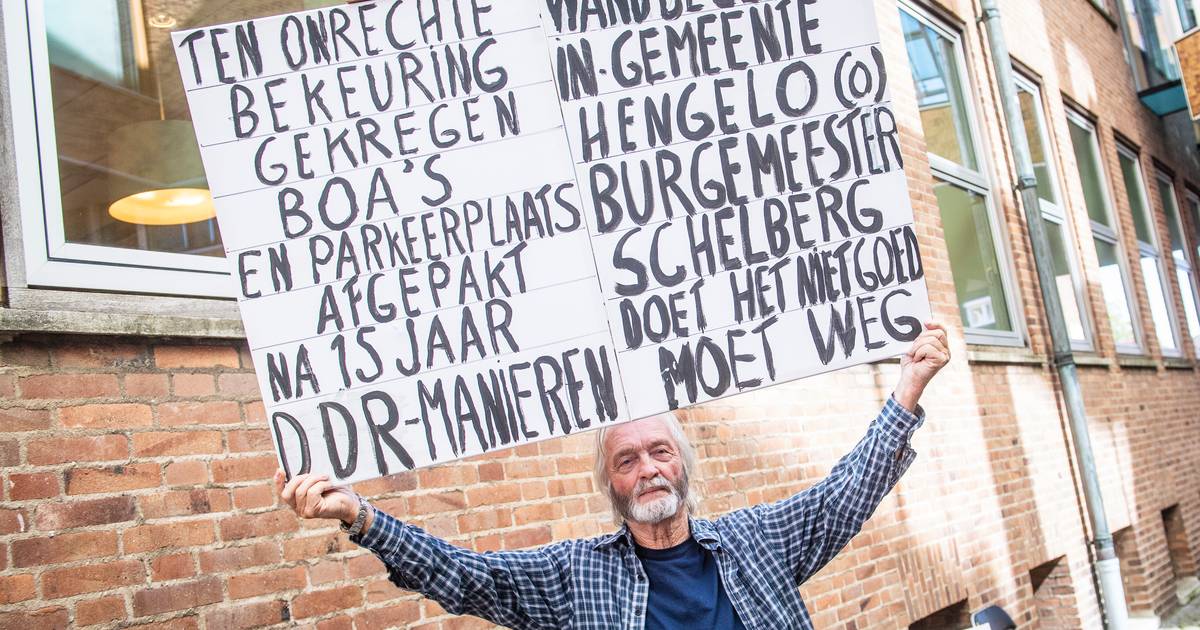 TEN ONRECHTE
BEKEURING
GEKREGEN
BOA'S
EN PARKEERPLAATS
AFGEPAKT
NA 15 JAAR
DDR-MANIEREN
IN·GEMEENTE
HENGELO (O)
BURGEMEESTER
SCHELBERG
DOET HET NIET GOED
MOET WEG